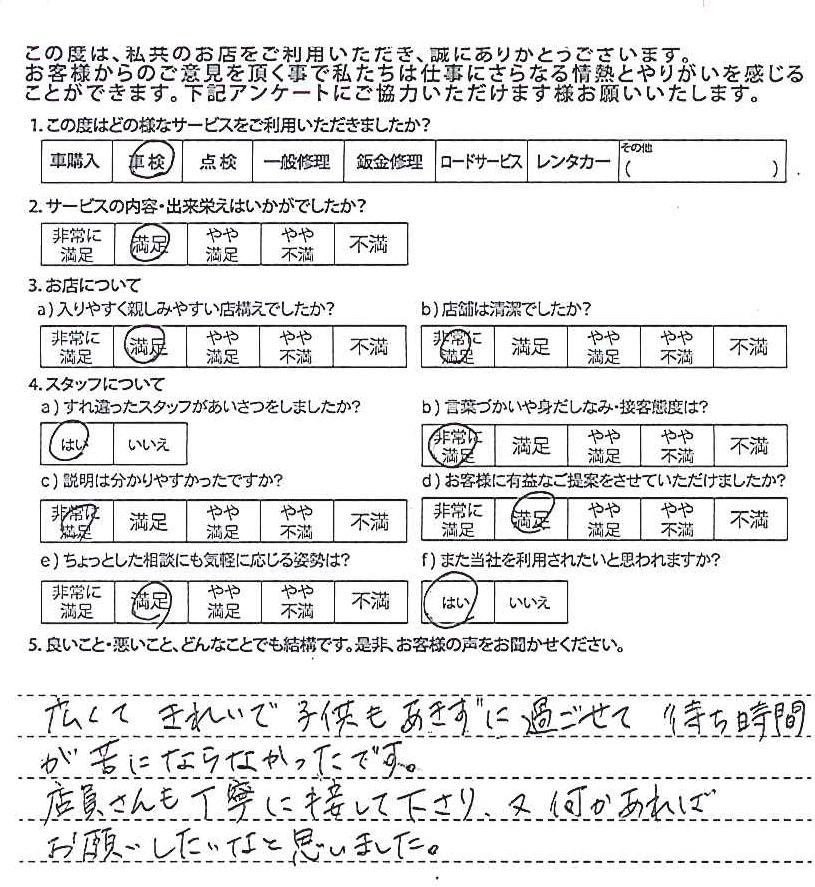 この度は、私共のお店をご利用いただき、誠にありがとうございます。
お客様からのご意見を頂く事で私たちは仕事にさらなる情熱とやりがいを感じる
ことができます。下記アンケートにご協力いただけます様お願いいたします。
1. この度はどの様なサービスをご利用いただきましたか?
車購入 車検 点検 一般修理 鈑金修理 ロードサービス レンタカー その他 ( )
2. サービスの内容・出来栄えはいかがでしたか?
非常に満足 満足 やや満足 やや不満 不満
3. お店について
a) 入りやすく親しみやすい店構えでしたか? b) 店舗は清潔でしたか?
非常に満足 満足 やや満足 やや不満 不満 非常に満足 満足 やや満足 やや不満 不満
4. スタッフについて
a) すれ違ったスタッフがあいさつをしましたか? b) 言葉づかいや身だしなみ・接客態度は?
はい いいえ 非常に満足 満足 やや満足 やや不満 不満
c) 説明は分かりやすかったですか? d) お客様に有益なご提案をさせていただけましたか?
非常に満足 満足 やや満足 やや不満 不満 非常に満足 満足 やや満足 やや不満 不満
e) ちょっとした相談にも気軽に応じる姿勢は? f) また当社を利用されたいと思われますか?
非常に満足 満足 やや満足 やや不満 不満 はい いいえ
5. 良いこと・悪いこと、どんなことでも結構です。是非、お客様の声をお聞かせください。
広くて きれいで 子供も あきずに 過ごせて 待ち時間
が 苦にならなかったです。
店員さんも 丁寧に 接して下さり、又 何かあれば
お願いしたいなと思いました。